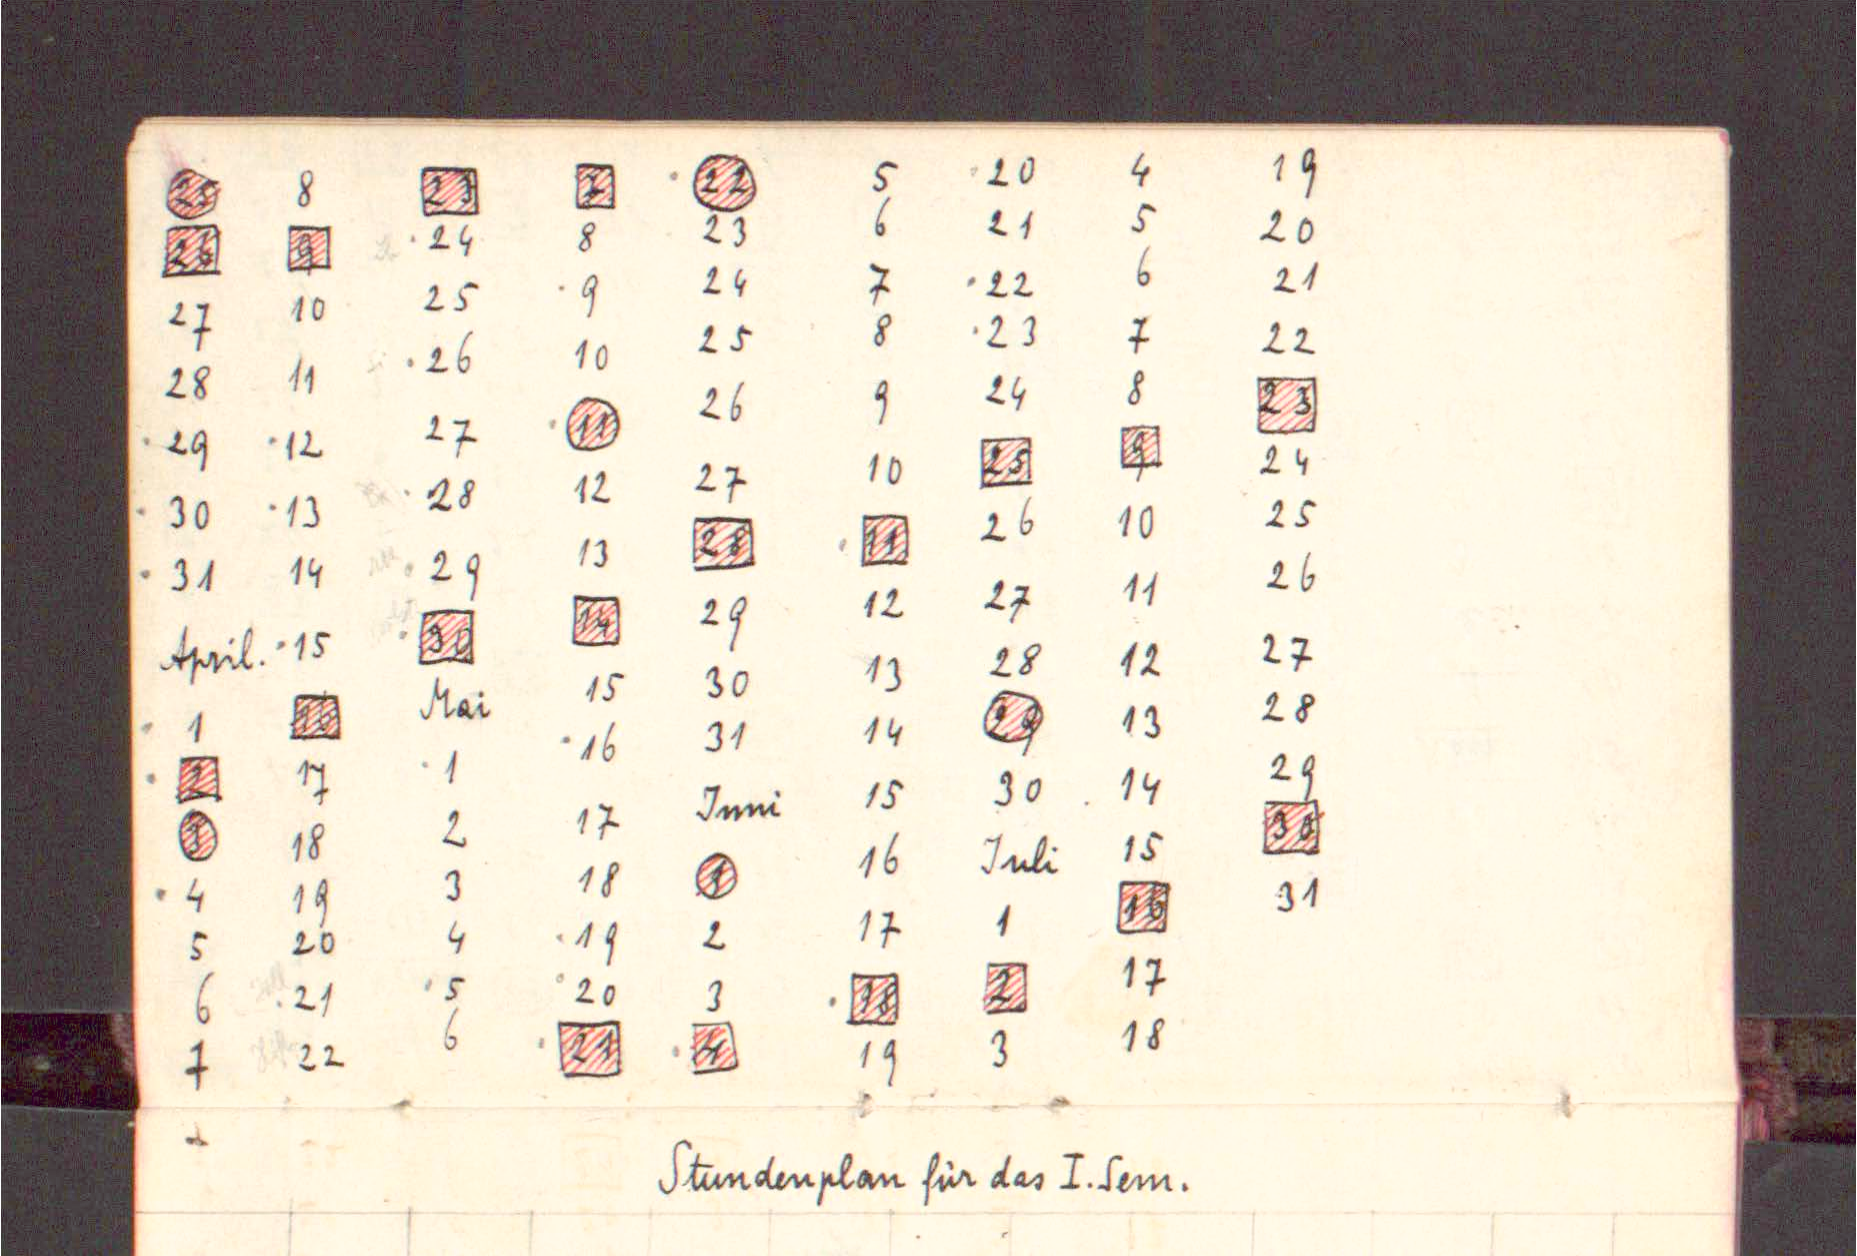 25
26
27
28
29
30
31
April.
1
2
3
4
5
6
7
8
9
10
11
12
13
14
15
16
17
18
19
20
21
22
23
24
25
26
27
28
29
30
Mai
1
2
3
4
5
6
7
8
9
10
11
12
13
14
15
16
17
18
19
20
21
22
23
24
25
26
27
28
29
30
31
Juni
1
2
3
4
5
6
7
8
9
10
11
12
13
14
15
16
17
18
19
20
21
22
23
24
25
26
27
28
29
30
Juli
1
2
3
4
5
6
7
8
9
10
11
12
13
14
15
16
17
18
19
20
21
22
23
24
25
26
27
28
29
30
31
Stundenplan für das I. Sem.